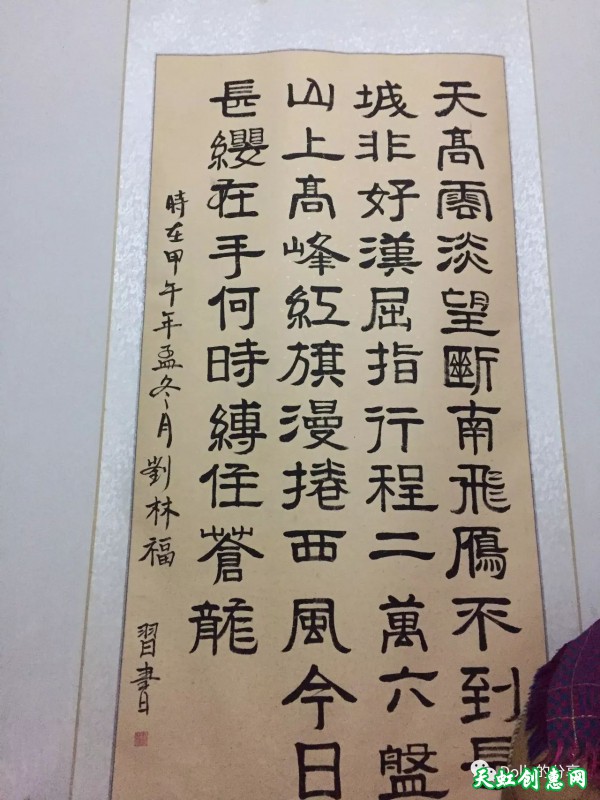 天髙雲淡望斷南飛鴈不到長
城非好漢屈指行程二萬六盤
山上髙峰紅旗漫捲西風今日
長纓在手何時縛住蒼龍
時在甲午年孟冬月劉林福 習書
的分享
天虹创意网